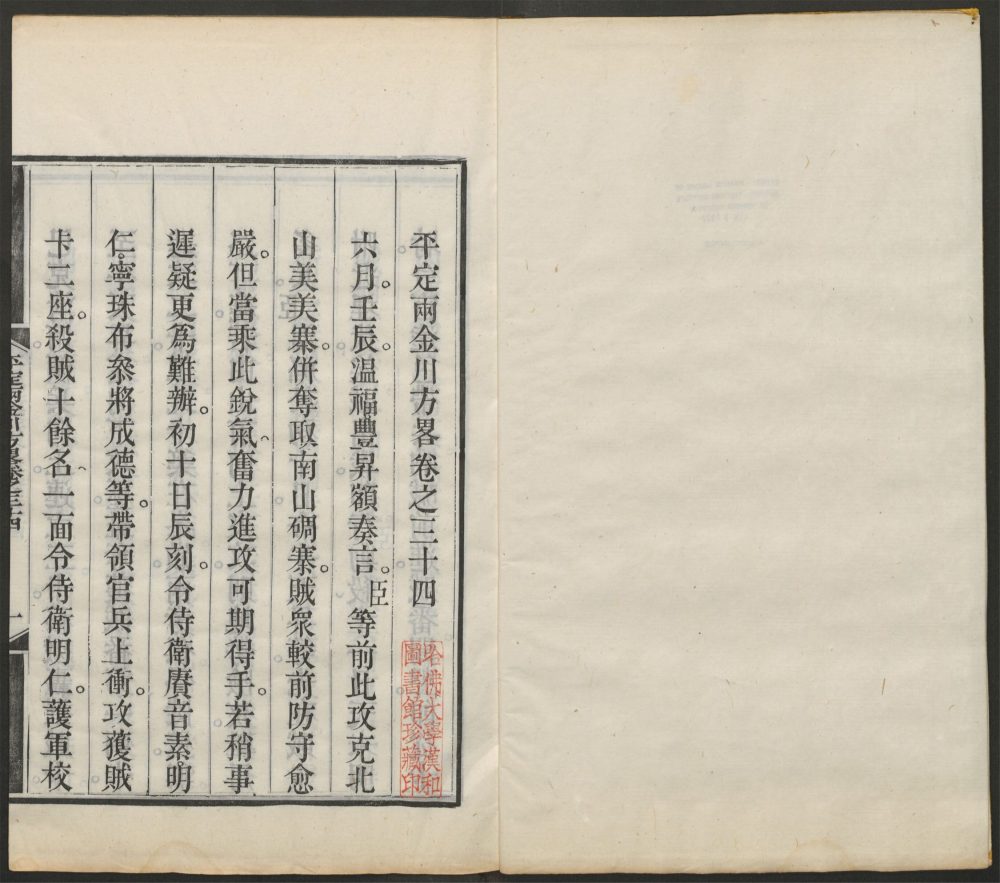 平定兩金川方畧卷之三十四
六月。壬辰。溫福。豐昇額奏言。臣等前此攻克北
山美美寨。併奪取南山碉寨。賊衆較前防守愈
嚴。但當乘此銳氣。奮力進攻。可期得手。若稍事
遲疑。更爲難辦。初十日辰刻。令侍衛賡音素。明
仁。寧珠布。叅將成德等。帶領官兵上衝。攻獲賊
卡二座。殺賊十餘名。一面令侍衛明仁。護軍校
哈佛大學漢和
圖書館珍藏印
平定兩金川方畧卷之三十四
一